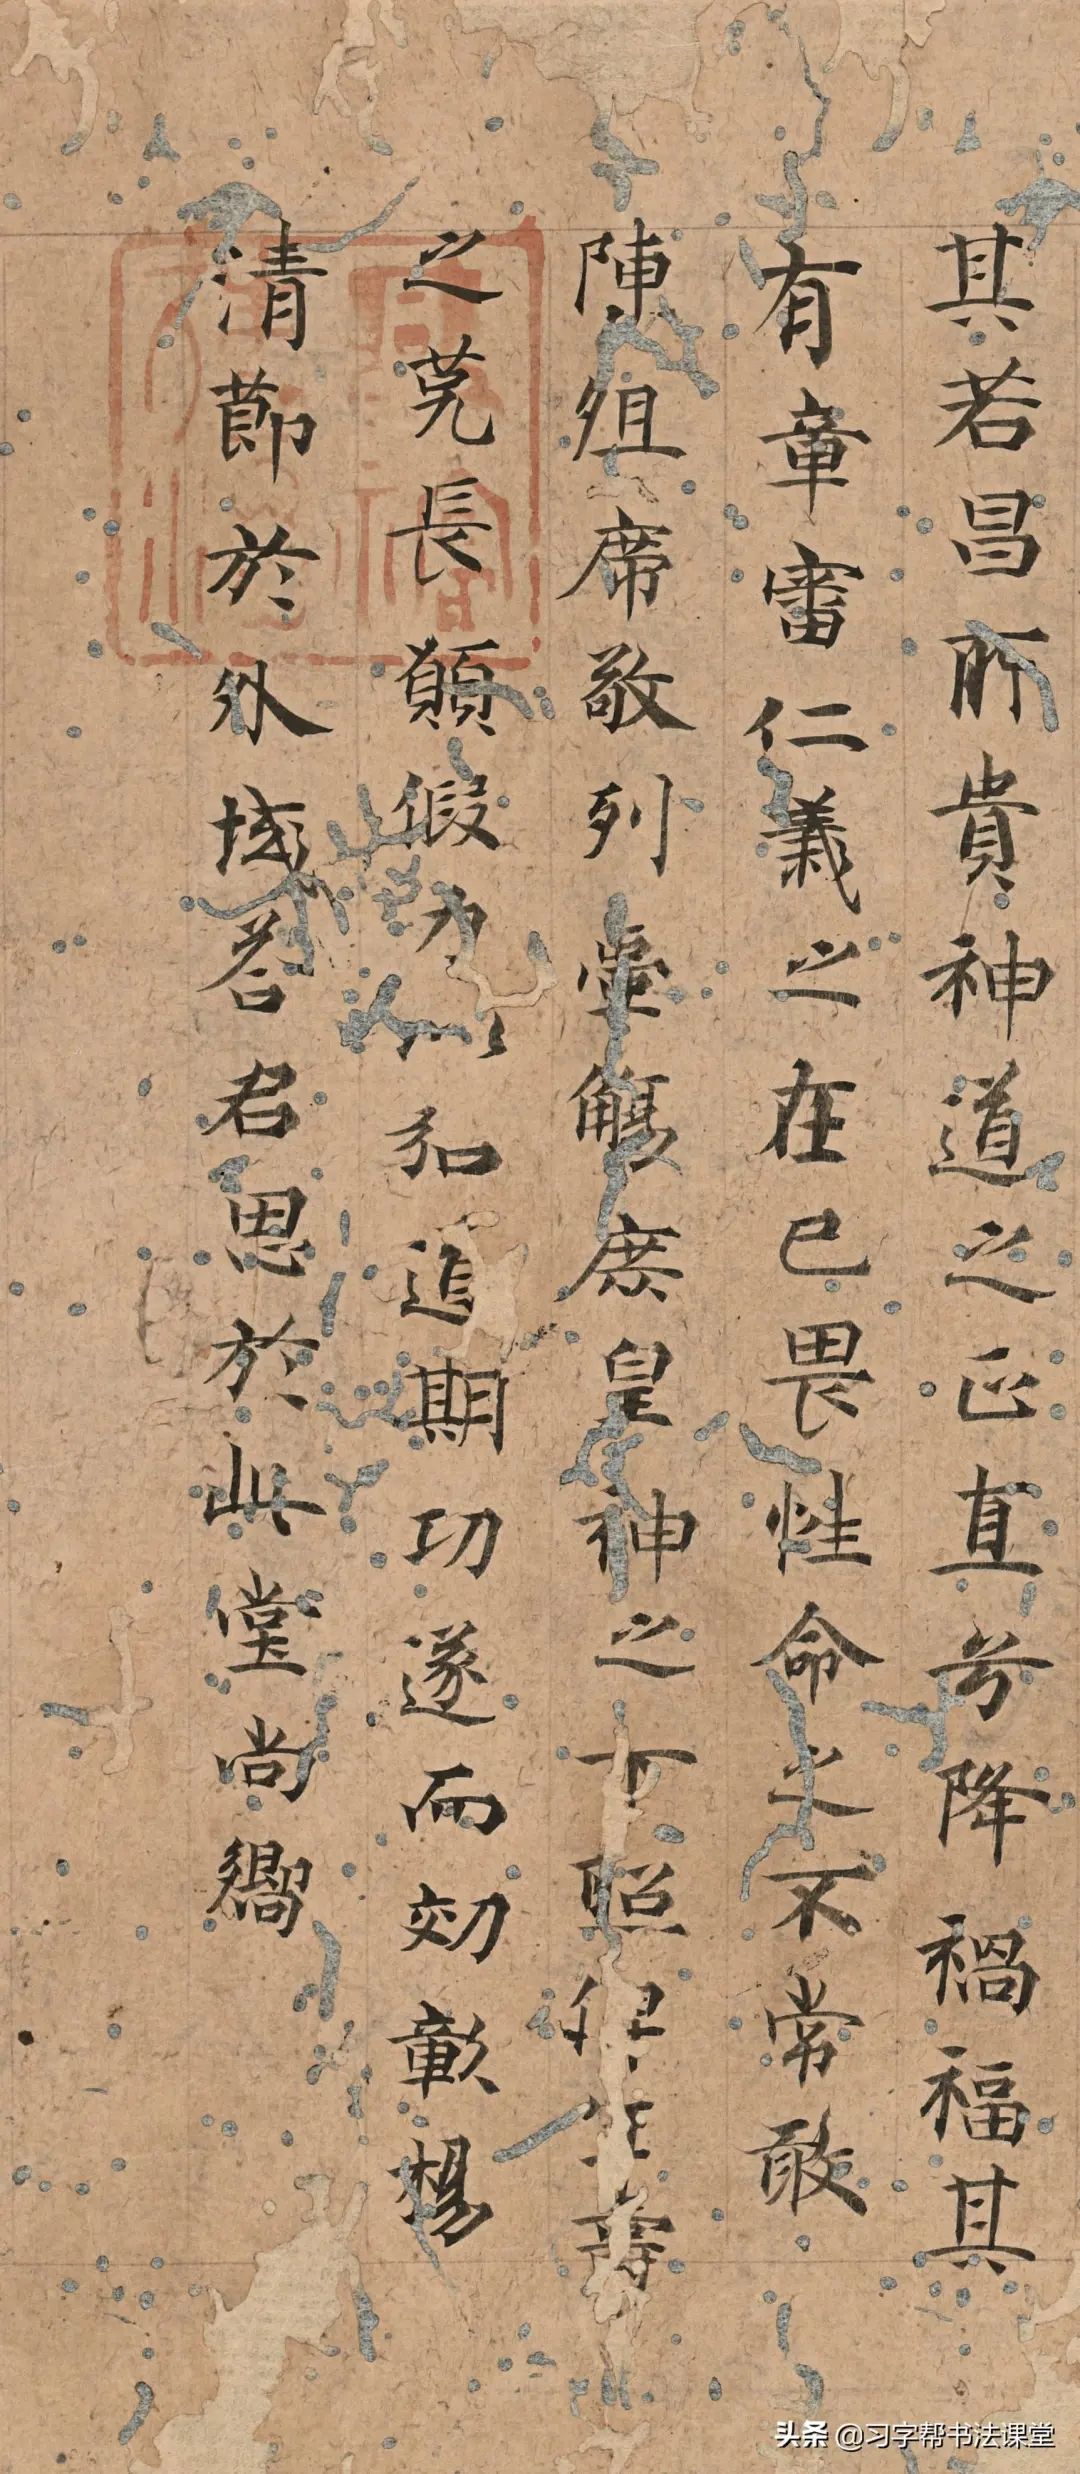 其若昌所貴神道之正直兮降禍福其
有章審仁義之在己畏性命之不常敢
陳俎席敬列壺觴庶皇神之下照俾生壽
之克長願假力弘追期功遂而効彰揚
清節於外域荅君恩於此堂尚嚮
头条 @习字帮书法课堂